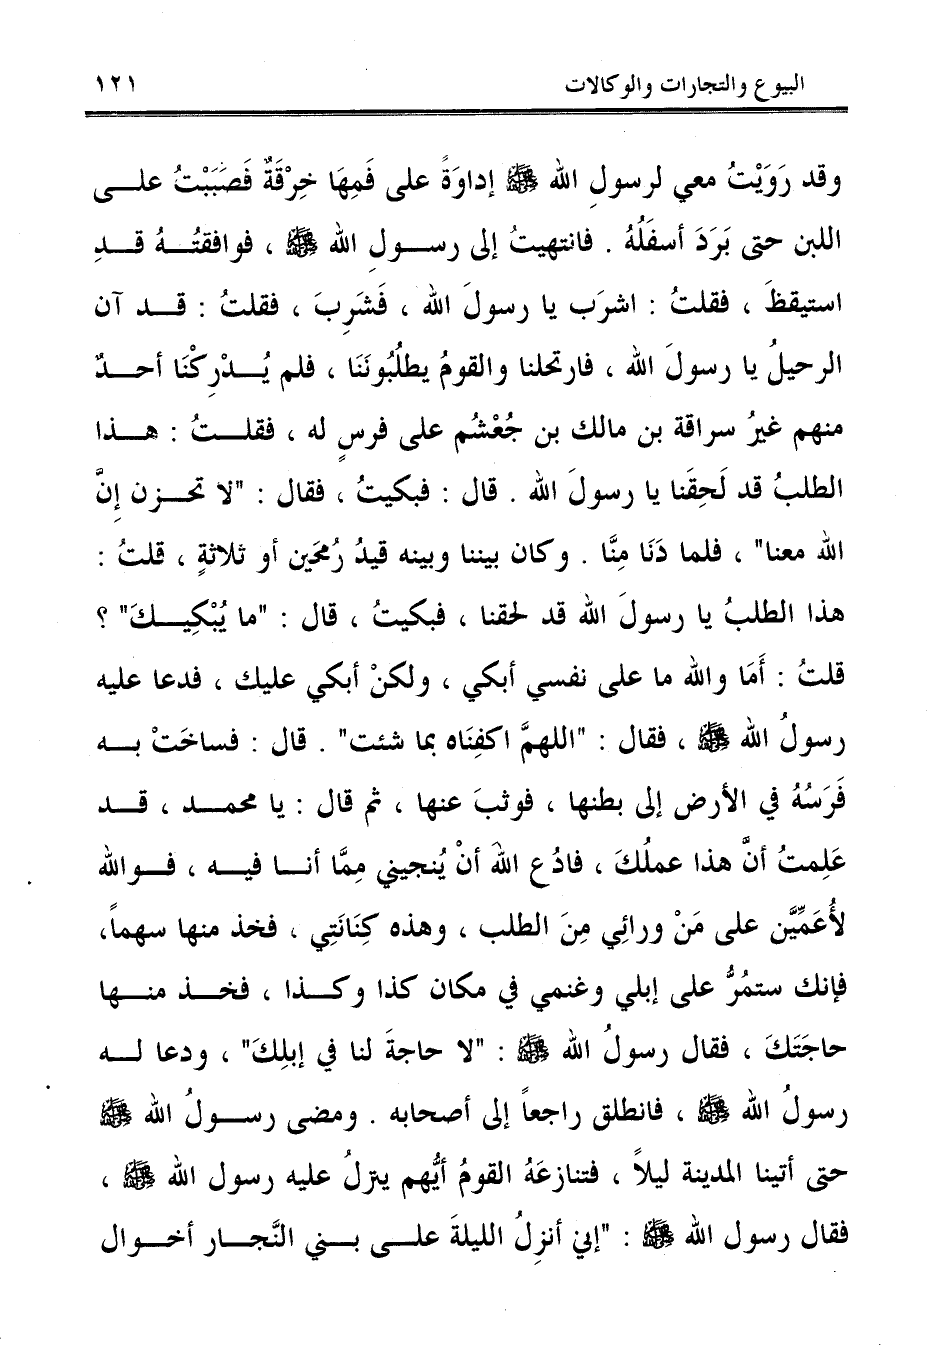 البيوع والتجارات والوكالات ١٢١
وقد رَوَيْتُ معي لرسولِ الله ﷺ إداوَةً على فَمِهَا خِرْقَةٌ فَصَبَبْتُ علـــى
اللبن حتى بَرَدَ أسفَلُهُ . فانتهيتُ إلى رســـولِ الله ﷺ ، فوافقتُـــهُ قـــدِ
استيقظَ ، فقلتُ : اشرَب يا رسولَ الله ، فَشَرِبَ ، فقلتُ : قـــد آن
الرحيلُ يا رسولَ الله ، فارتحلنا والقومُ يطلُبُونَنَا ، فلم يُـــدْرِكْنَا أحـــدٌ
منهم غيرُ سراقة بن مالك بن جُعْشُم على فرسٍ له ، فقلـــتُ : هـــذا
الطلبُ قد لَحِقَنا يا رسولَ الله . قال : فبكيتُ ، فقال : "لا تحـــزن إنَّ
الله معنا" ، فلما دَنَا مِنَّا . وكان بيننا وبينه قيدُ رُمحَين أو ثلاثةٍ ، قلتُ :
هذا الطلبُ يا رسولَ الله قد لحقنا ، فبكيتُ ، قال : "ما يُبْكِيـــكَ" ؟
قلتُ : أَمَا والله ما على نفسي أبكي ، ولكنْ أبكي عليك ، فدعا عليه
رسولُ الله ﷺ ، فقال : "اللهمَّ اكفِنَاه بما شئت" . قال : فساخَتْ بـــه
فَرَسُهُ في الأرض إلى بطنها ، فوثبَ عنها ، ثم قال : يا محمـــد ، قـــد
عَلِمتُ أنَّ هذا عملُكَ ، فادُع اللهَ أنْ يُنجيني مِمَّا أنـــا فيـــه ، فـــوالله
لأُعَمِّيَّن على مَنْ ورائِي مِنَ الطلب ، وهذه كِنَانَتِي ، فخذ منها سهماً،
فإنك ستمُرُّ على إبلي وغنمي في مكان كذا وكـــذا ، فخـــذ منـــها
حاجَتَكَ ، فقال رسولُ الله ﷺ : "لا حاجةَ لنا في إبلِكَ" ، ودعا لـــه
رسولُ الله ﷺ ، فانطلق راجعاً إلى أصحابه . ومضى رســـولُ الله ﷺ
حتى أتينا المدينة ليلاً ، فتنازعَهُ القومُ أيُّهم ينزلُ عليه رسول الله ﷺ ،
فقال رسول الله ﷺ : "إني أنزِلُ الليلةَ علـــى بـــني النَّجـــار أخـــوال